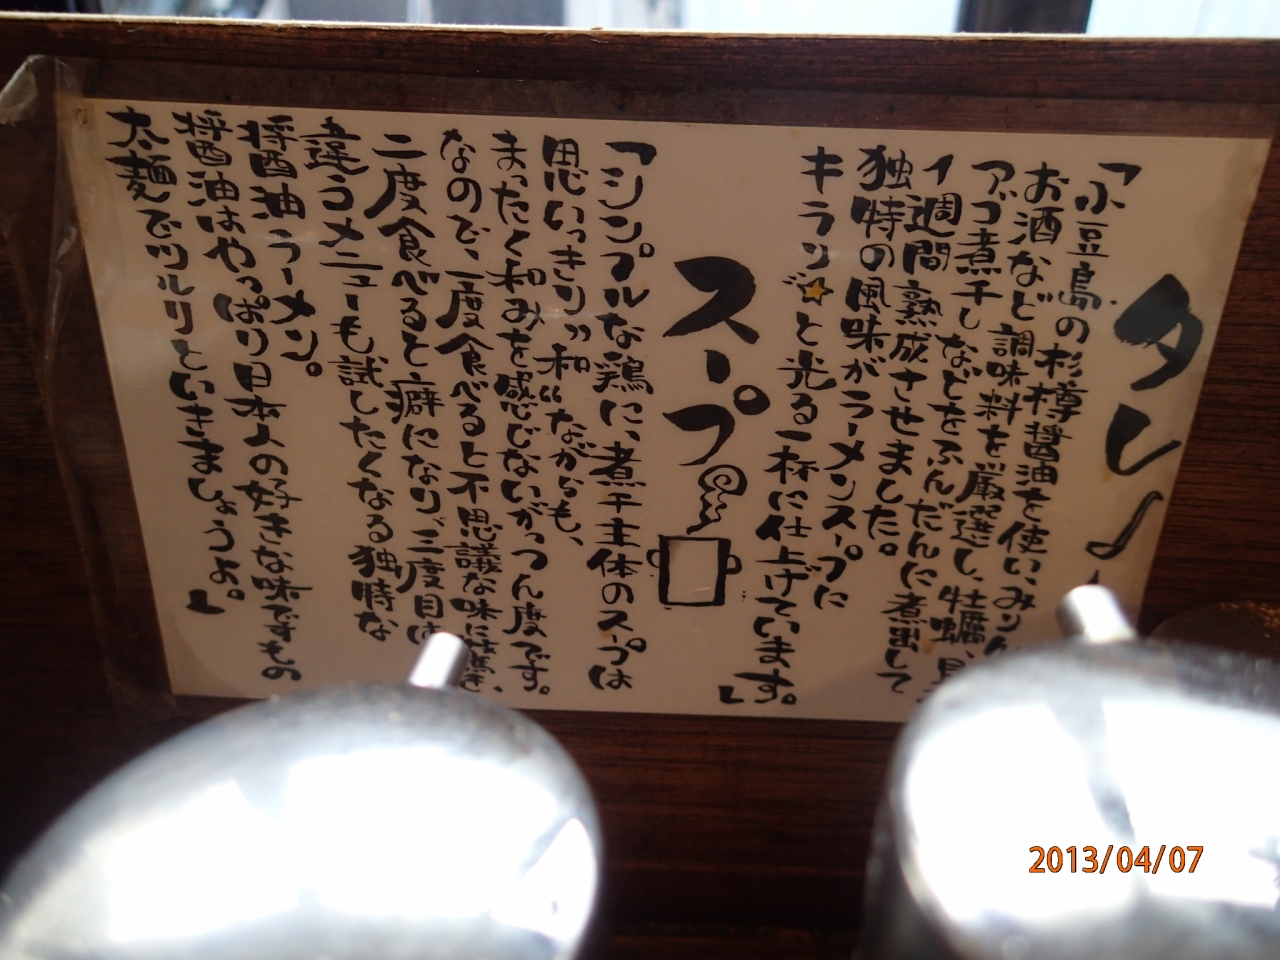 タレ♪
「小豆島の杉樽醤油を使い、みりん
お酒など調味料を厳選し、牡蠣、貝
アゴ煮干しなどをふんだんに煮出して
1週間熟成させました。
独特の風味がラーメンスープに
キラリ⭐と光る一杯に仕上げています。」
スープ
「シンプルな鶏に、煮干主体のスープは
思いっきり〃和〃ながらも、
まったく和みを感じないがっつん度です。
なので、一度食べると不思議な味に驚き、
二度食べると癖になり、三度目は
違うメニューも試したくなる独特な
醤油ラーメン。
醤油はやっぱり日本人の好きな味ですもの
太麺でツルリといきましょうよ。」
2013/04/07